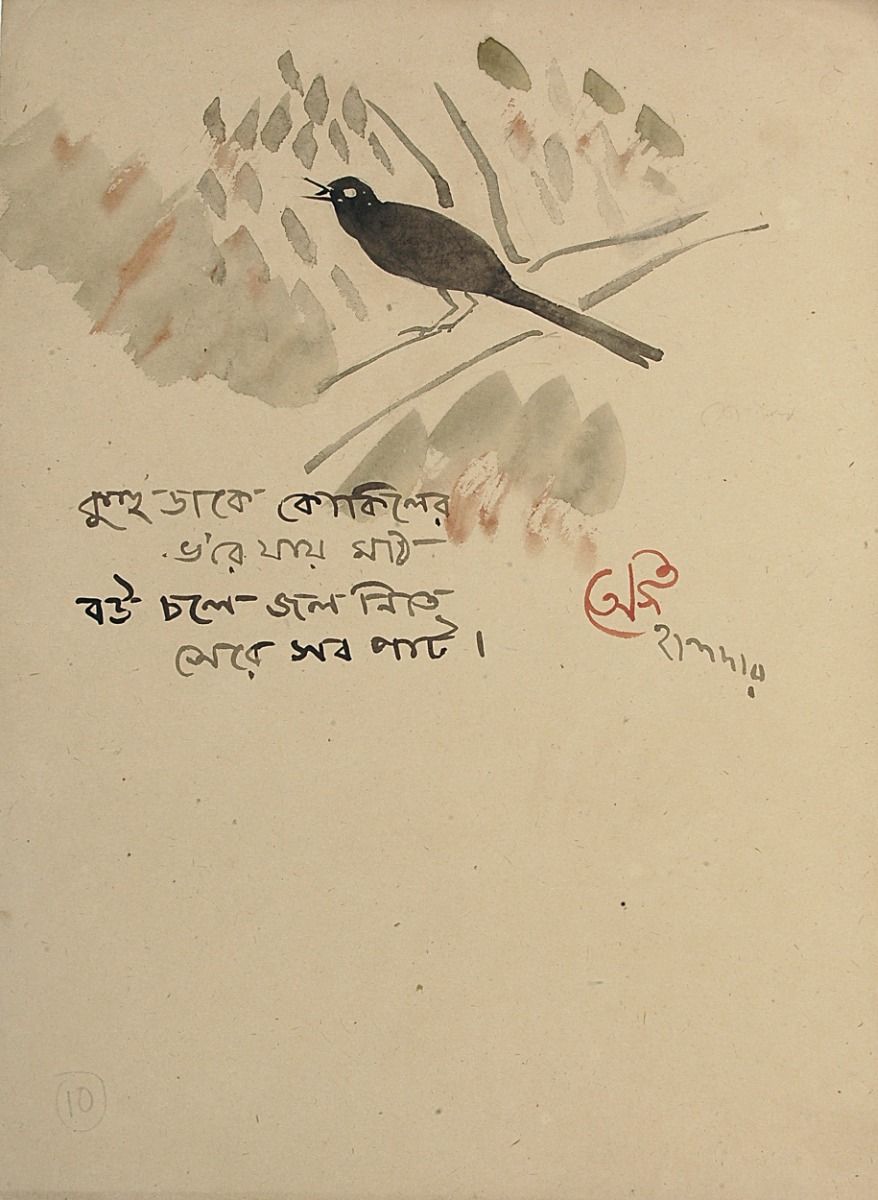 কুহু ডাকে কোকিলের
ভ'রে যায় মাঠ
বউ চলে জল নিতে
সেরে সব পাট ।
অসিত
হালদার
10